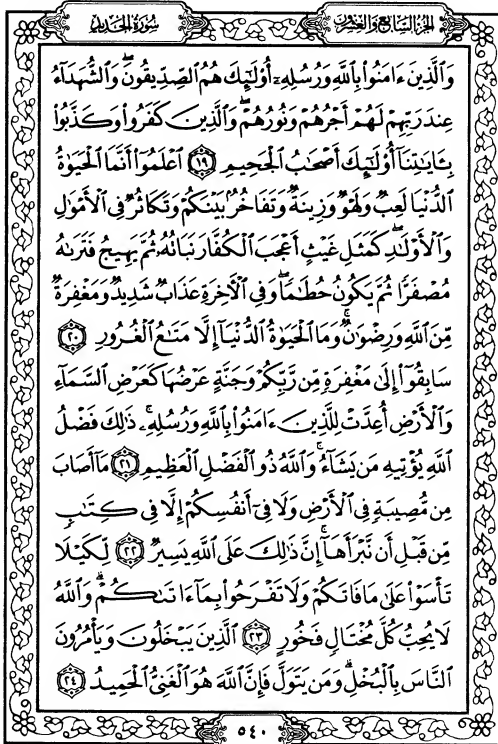 الجزء السابع والعشرون
سورة الحديد
وَالَّذِينَ ءَامَنُوا۟ بِاللَّهِ وَرُسُلِهِۦٓ أُو۟لَٰٓئِكَ هُمُ الصِّدِّيقُونَ ۖ وَالشُّهَدَآءُ
عِندَ رَبِّهِمْ لَهُمْ أَجْرُهُمْ وَنُورُهُمْ ۖ وَالَّذِينَ كَفَرُوا۟ وَكَذَّبُوا۟
بِـَٔايَٰتِنَآ أُو۟لَٰٓئِكَ أَصْحَٰبُ الْجَحِيمِ ﴿١٩﴾ اعْلَمُوٓا۟ أَنَّمَا الْحَيَوٰةُ
الدُّنْيَا لَعِبٌ وَلَهْوٌ وَزِينَةٌ وَتَفَاخُرٌۢ بَيْنَكُمْ وَتَكَاثُرٌ فِى الْأَمْوَٰلِ
وَالْأَوْلَٰدِ ۖ كَمَثَلِ غَيْثٍ أَعْجَبَ الْكُفَّارَ نَبَاتُهُۥ ثُمَّ يَهِيجُ فَتَرَىٰهُ
مُصْفَرًّا ثُمَّ يَكُونُ حُطَٰمًا ۖ وَفِى الْأَخِرَةِ عَذَابٌ شَدِيدٌ وَمَغْفِرَةٌ
مِّنَ اللَّهِ وَرِضْوَٰنٌ ۚ وَمَا الْحَيَوٰةُ الدُّنْيَآ إِلَّا مَتَٰعُ الْغُرُورِ ﴿٢٠﴾
سَابِقُوٓا۟ إِلَىٰ مَغْفِرَةٍ مِّن رَّبِّكُمْ وَجَنَّةٍ عَرْضُهَا كَعَرْضِ السَّمَآءِ
وَالْأَرْضِ أُعِدَّتْ لِلَّذِينَ ءَامَنُوا۟ بِاللَّهِ وَرُسُلِهِۦ ۚ ذَٰلِكَ فَضْلُ
اللَّهِ يُؤْتِيهِ مَن يَشَآءُ ۚ وَاللَّهُ ذُو الْفَضْلِ الْعَظِيمِ ﴿٢١﴾ مَآ أَصَابَ
مِن مُّصِيبَةٍ فِى الْأَرْضِ وَلَا فِىٓ أَنفُسِكُمْ إِلَّا فِى كِتَٰبٍ
مِّن قَبْلِ أَن نَّبْرَأَهَآ ۚ إِنَّ ذَٰلِكَ عَلَى اللَّهِ يَسِيرٌ ﴿٢٢﴾ لِّكَيْلَا
تَأْسَوْا۟ عَلَىٰ مَا فَاتَكُمْ وَلَا تَفْرَحُوا۟ بِمَآ ءَاتَىٰكُمْ ۗ وَاللَّهُ
لَا يُحِبُّ كُلَّ مُخْتَالٍ فَخُورٍ ﴿٢٣﴾ الَّذِينَ يَبْخَلُونَ وَيَأْمُرُونَ
النَّاسَ بِالْبُخْلِ ۗ وَمَن يَتَوَلَّ فَإِنَّ اللَّهَ هُوَ الْغَنِىُّ الْحَمِيدُ ﴿٢٤﴾
٥٤٠